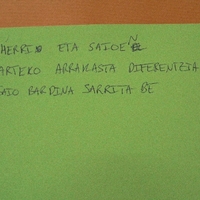 HERRI ETA SAIOEN
ARTEKO ARRAKASTA DIFERENTZIA
SAIO BARDINA SARRITA BE